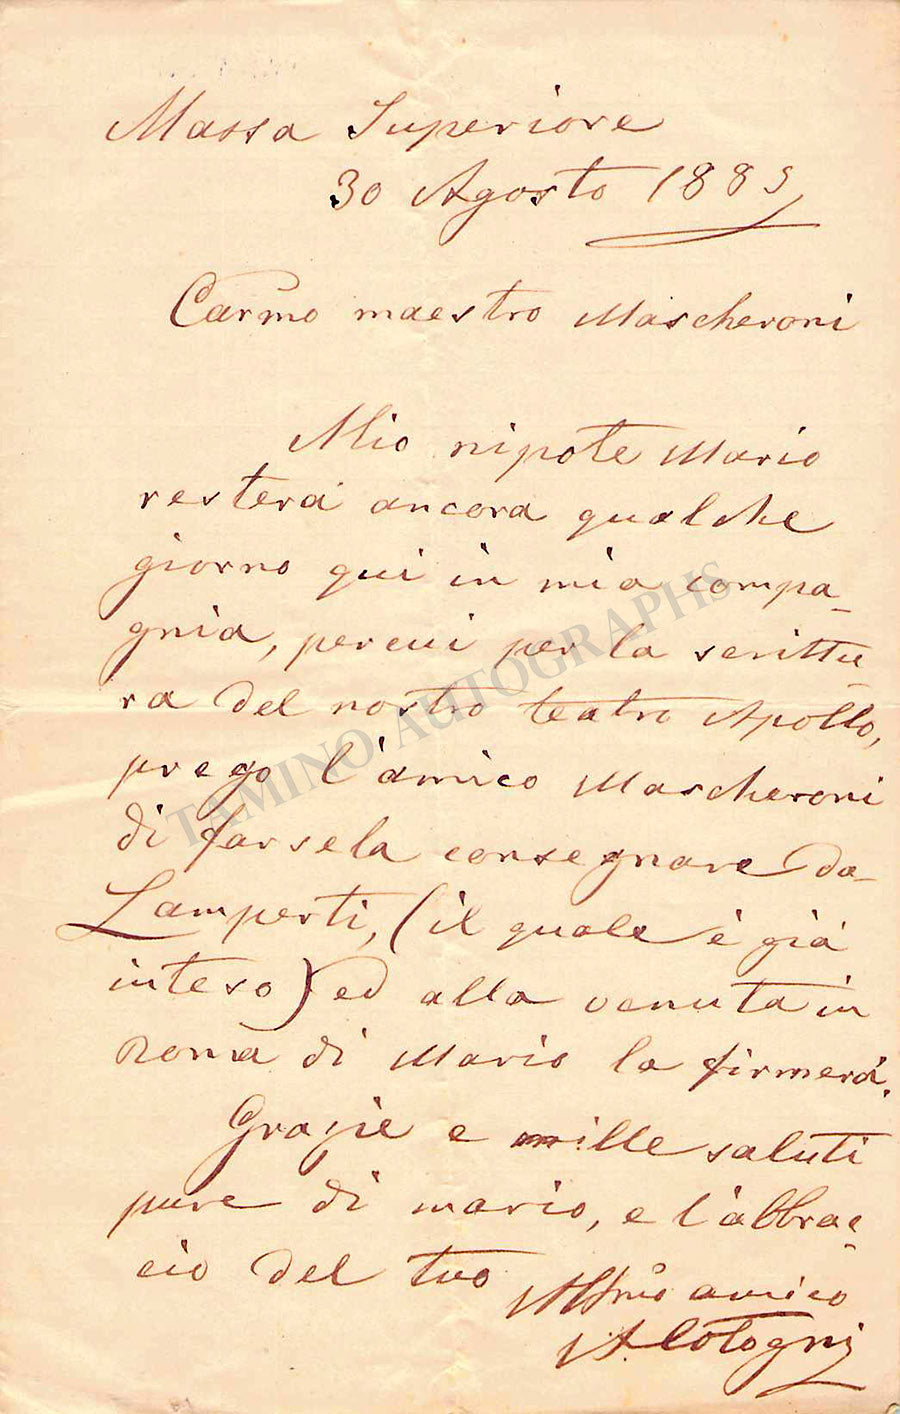 Massa Superiore
30 Agosto 1889
Carmo maestro Mascheroni
Mio nipote Mario
resterà ancora qualche
giorno qui in mia compa-
gnia, percui per la scrittu-
ra del nostro teatro Apollo,
prego l'amico Mascheroni
di farsela consegnare da
Lamperti, (il quale è già
inteso) ed alla venuta in
Roma di Mario la firmerà.
Grazie e mille saluti
pure di Mario, e l'abbrac-
cio del tuo Affmo amico
A. Cotogni
TAMINO AUTOGRAPHS